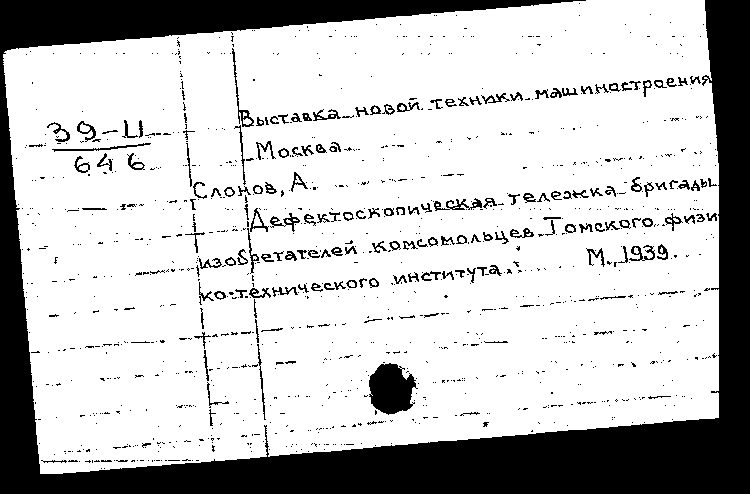 Выставка новой техники машиностроения
39-Ц
646
Москва
Слонов, А.
Дефектоскопическая тележка бригады
изобретателей комсомольцев Томского физи
ко-технического института.
М., 1939.